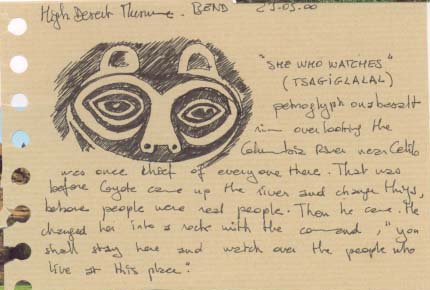 High Desert Museum. BEND 25.05.00
"SHE WHO WATCHES"
(TSAGIGLALAL)
petroglyph on a basalt
rim overlooking the
Columbia River near Celilo
was once chief of everyone there. That was
before Coyote came up the river and change things,
before people were real people. Then he came. He
changed her into a rock with the command, "you
shall stay here and watch over the people who
live at this place".